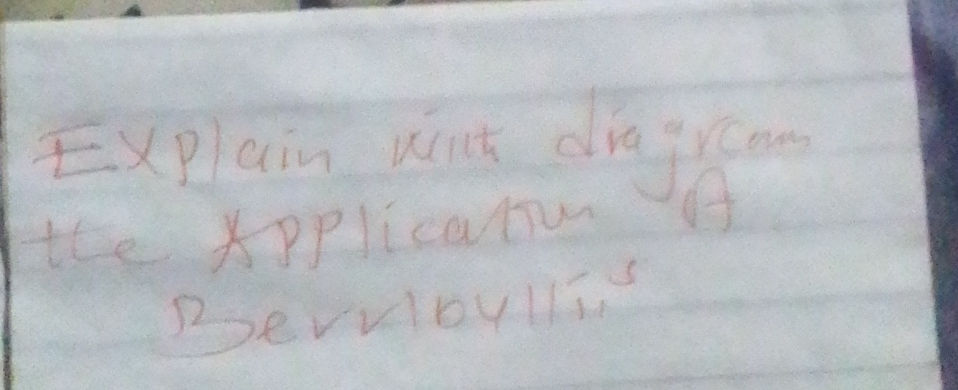 Explain with diagram
the Application of
Berrloullii's